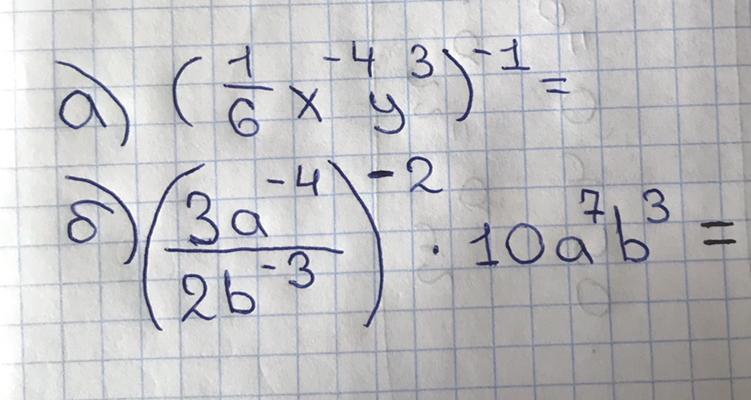 а) (1/6 x⁻⁴ y³)⁻¹ =
б) (3a⁻⁴ / 2b⁻³)⁻² · 10a⁷b³ =